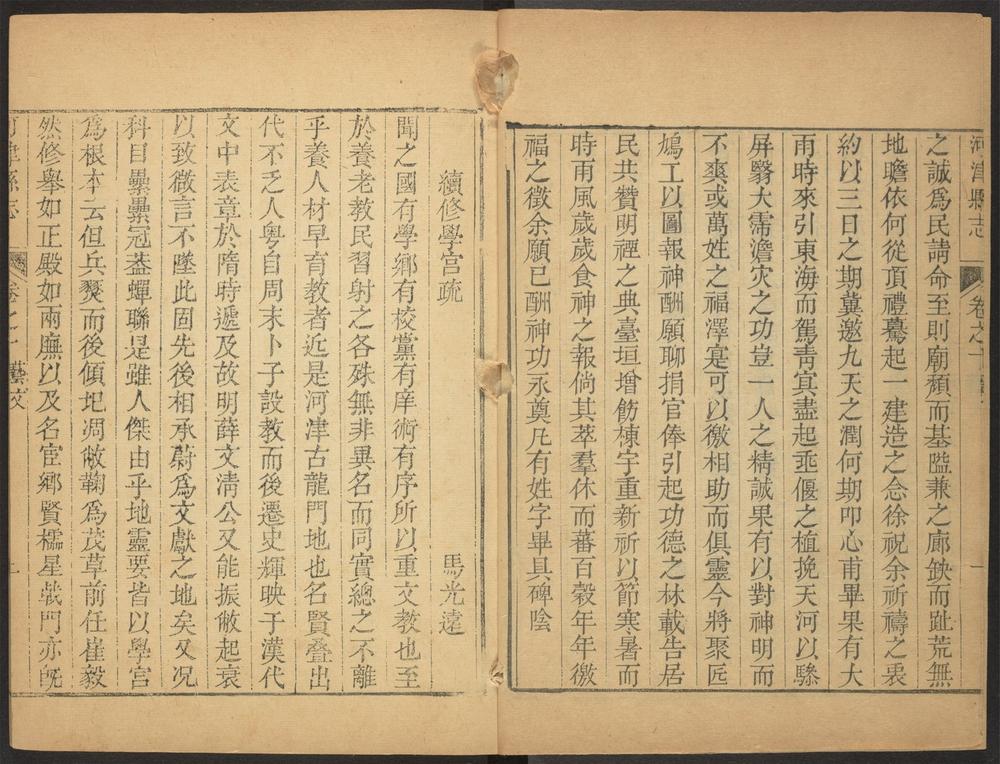 河津縣志 卷之十
之誠爲民請命至則廟頹而基隘兼之廊缺而趾荒無
地瞻依何從頂禮驀起一建造之念徐祝余祈禱之衷
約以三日之期冀邀九天之潤何期叩心甫畢果有大
雨時來引東海而駕青寅盡起垂偃之植挽天河以驂
屏翳大霈澹灾之功豈一人之精誠果有以對神明而
不爽或萬姓之福澤寔可以徼相助而俱靈今將聚匠
鳩工以圖報神酬願聊捐官俸引起功德之林載告居
民共贊明禋之典臺垣增飭棟宇重新祈以節寒暑而
時雨風歲歲食神之報倘其萃羣休而蕃百穀年年徼
福之徵余願已酬神功永奠凡有姓字畢具碑陰
續修學宫疏 馬光遠
聞之國有學鄉有校黨有庠術有序所以重文教也至
於養老教民習射之各殊無非異名而同實總之不離
乎養人材早育教者近是河津古龍門地也名賢疊出
代不乏人粤自周末卜子設教而後遷史輝映于漢代
文中表章於隋時遞及故明薛文淸公又能振敝起衰
以致微言不墜此固先後相承蔚爲文獻之地矣又况
科目纍纍冠葢蟬聯是雖人傑由乎地靈要皆以學宫
爲根本云但兵燹而後傾圯凋敝鞠爲茂草前任崔毅
然修舉如正殿如兩廡以及名宦鄉賢櫺星戟門亦旣
河津縣志 卷之十 藝文 一